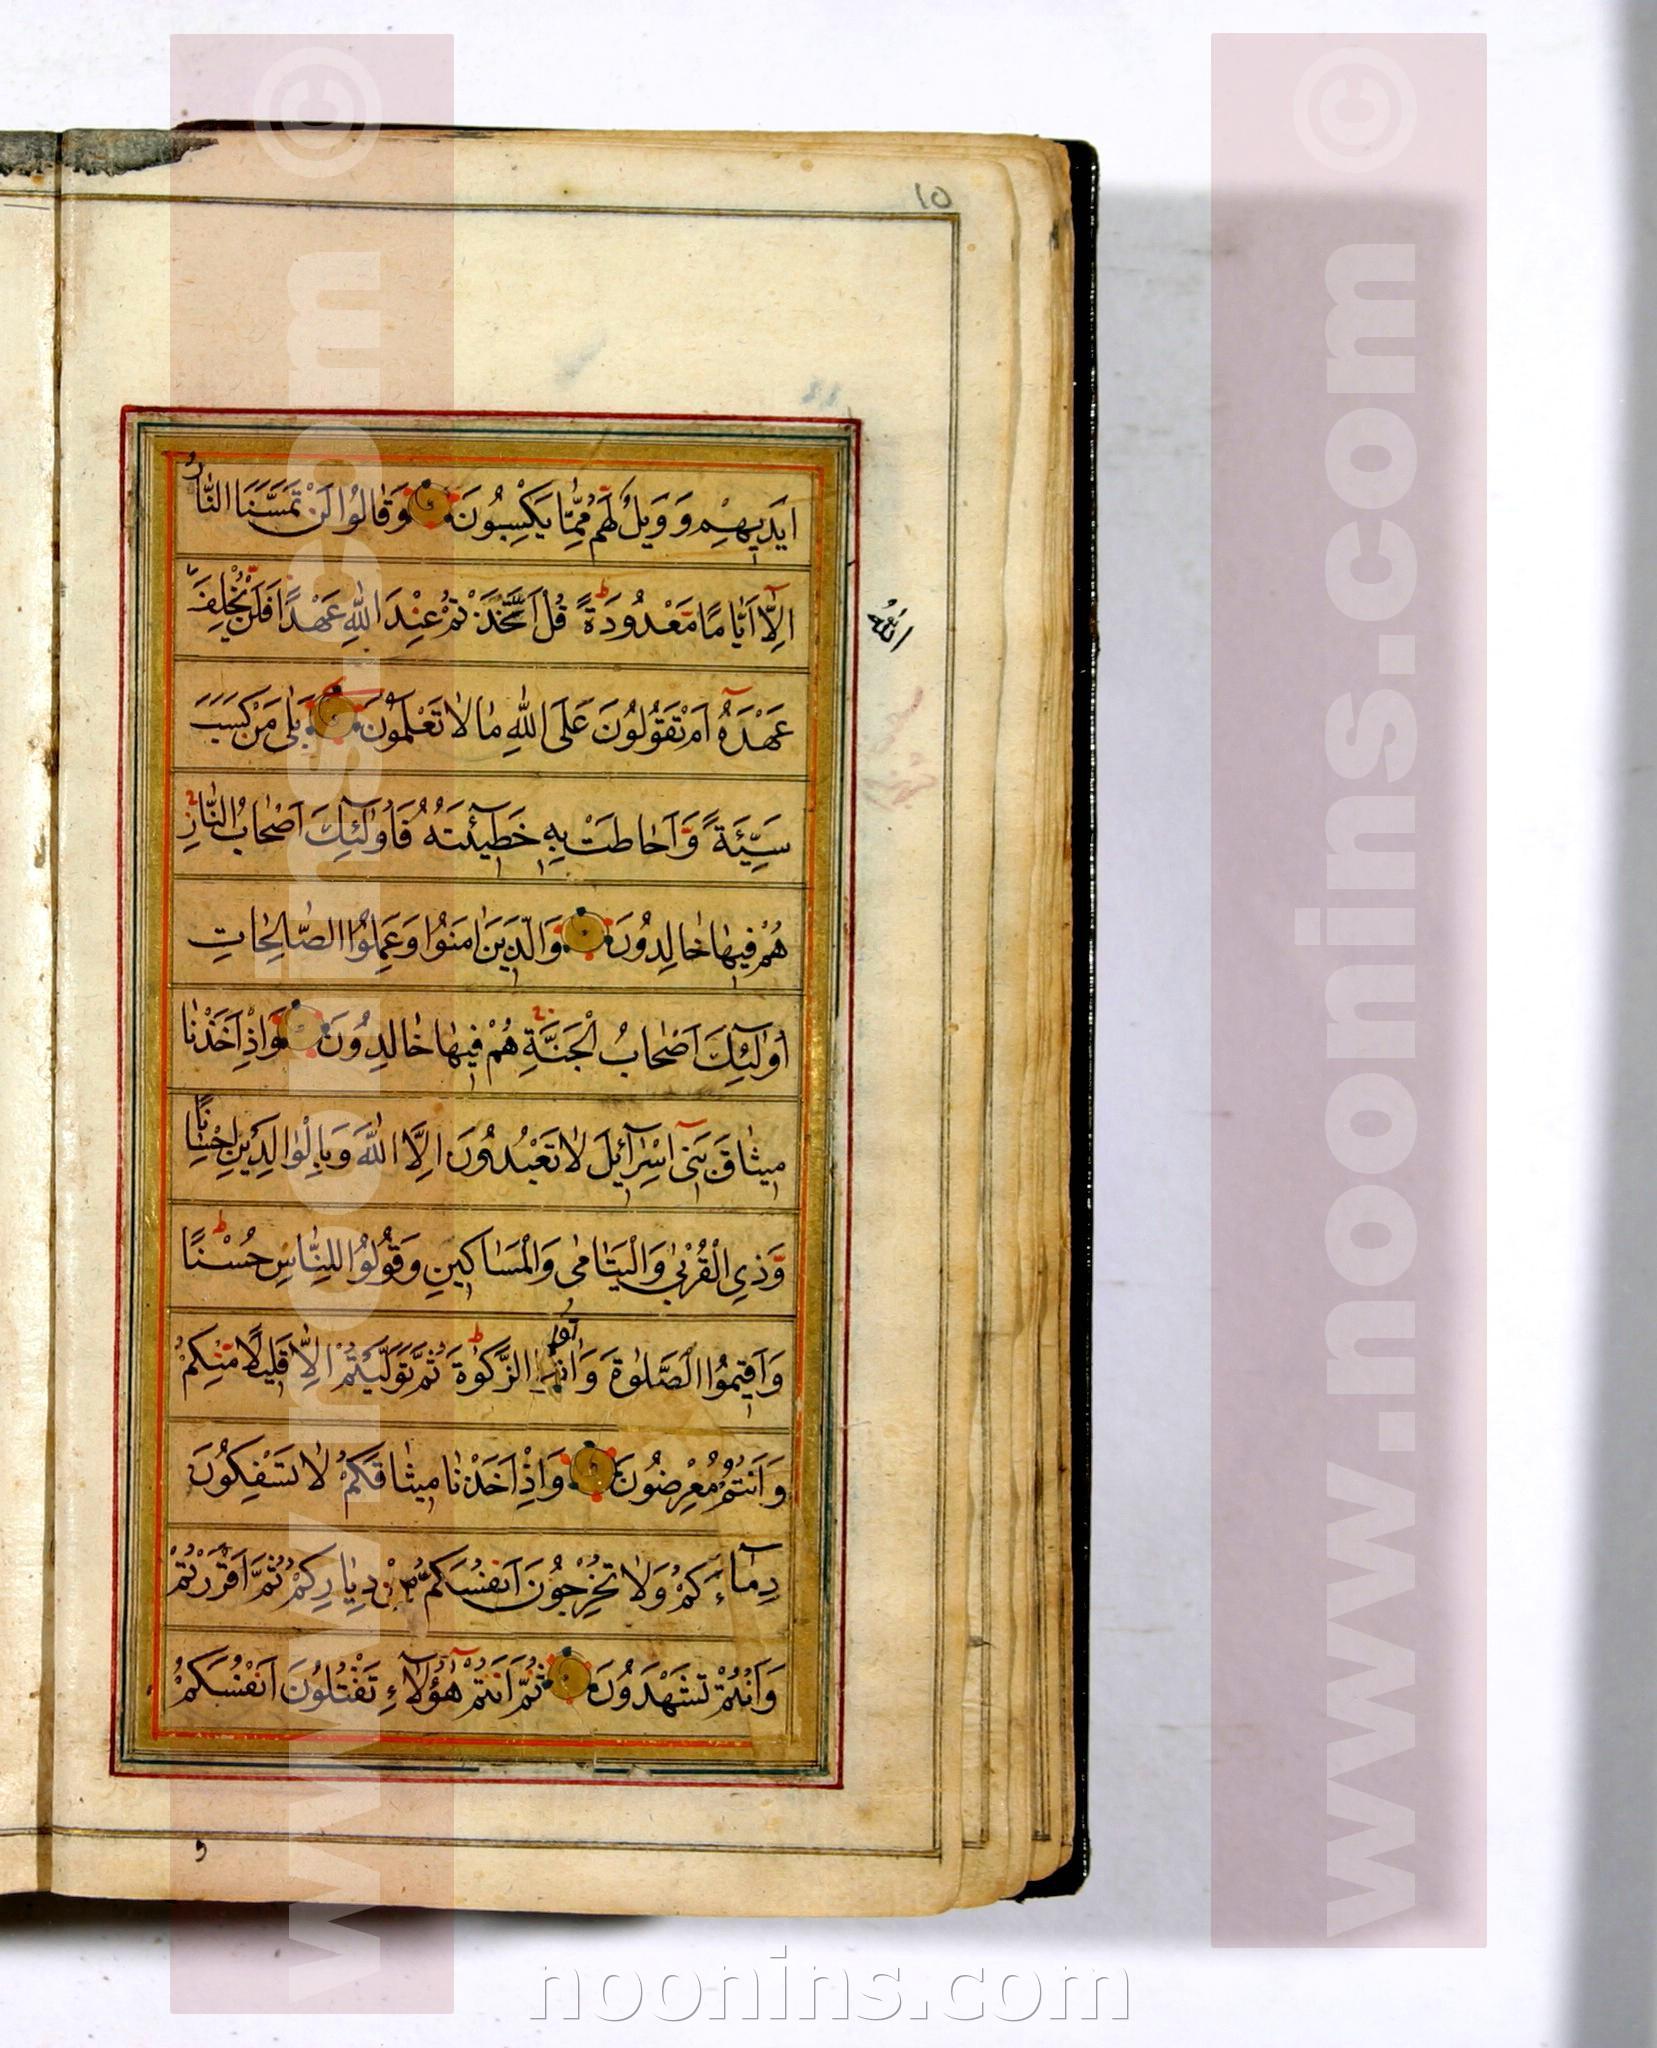 10
اَيْديهِمْ وَ وَيْلٌ لَهُمْ مِمَّا يَكْسِبُونَ وَقَالُوا لَنْ تَمَسَّنَا النَّارُ
اِلَّا اَيَّامًا مَعْدُودَةً قُلْ اَتَّخَذْتُمْ عِنْدَ اللّٰهِ عَهْدًا فَلَنْ يُخْلِفَ
اللّٰهُ
عَهْدَهُ اَمْ تَقُولُونَ عَلَى اللّٰهِ مَا لَا تَعْلَمُونَ بَلٰى مَنْ كَسَبَ
سَيِّئَةً وَاَحَاطَتْ بِهِ خَطيٓئَتُهُ فَاُولٰٓئِكَ اَصْحَابُ النَّارِ
هُمْ فيهَا خَالِدُونَ وَالَّذينَ اٰمَنُوا وَعَمِلُوا الصَّالِحَاتِ
اُولٰٓئِكَ اَصْحَابُ الْجَنَّةِ هُمْ فيهَا خَالِدُونَ وَاِذْ اَخَذْنَا
ميثَاقَ بَنى اِسْرَآئيلَ لَا تَعْبُدُونَ اِلَّا اللّٰهَ وَبِالْوَالِدَيْنِ اِحْسَانًا
وَذِي الْقُرْبٰى وَالْيَتَامٰى وَالْمَسَاكينِ وَقُولُوا لِلنَّاسِ حُسْنًا
وَاَقيمُوا الصَّلٰوةَ وَاٰتُوا الزَّكٰوةَ ثُمَّ تَوَلَّيْتُمْ اِلَّا قَليلًا مِنْكُمْ
وَاَنْتُمْ مُعْرِضُونَ وَاِذْ اَخَذْنَا ميثَاقَكُمْ لَا تَسْفِكُونَ
دِمَآءَكُمْ وَلَا تُخْرِجُونَ اَنْفُسَكُمْ مِنْ دِيَارِكُمْ ثُمَّ اَقْرَرْتُمْ
وَاَنْتُمْ تَشْهَدُونَ ثُمَّ اَنْتُمْ هٰٓؤُلَآءِ تَقْتُلُونَ اَنْفُسَكُمْ
www.noonins.com ©
www.noonins.com ©
noonins.com